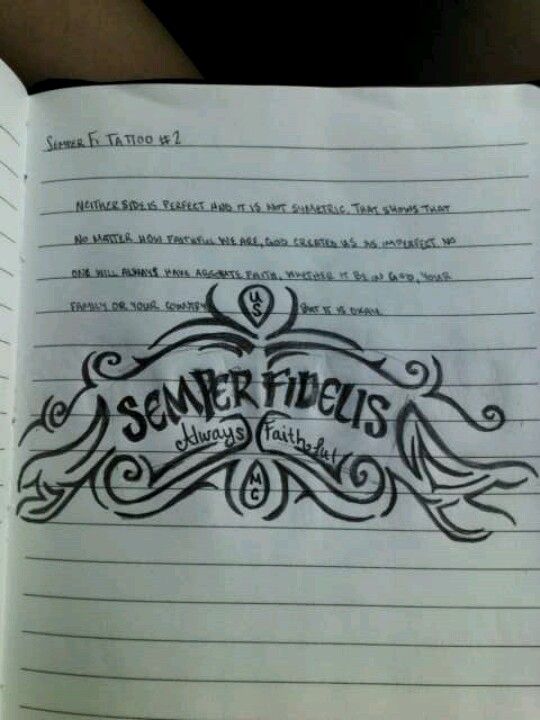 SEMPER FI TATTOO #2
NEITHER SIDE IS PERFECT AND IT IS NOT SUMETRIC. THAT SHOWS THAT
NO MATTER HOW FAITHFUL WE ARE, GOD CREATED US AS IMPERFECT. NO
ONE WILL ALWAYS HAVE ABSOLUTE FAITH. WHETHER IT BE IN GOD, YOUR
FAMILY OR YOUR COUNTRY BUT IT IS OKAY.
US
SEMPER FIDELIS
Always Faithful
MC